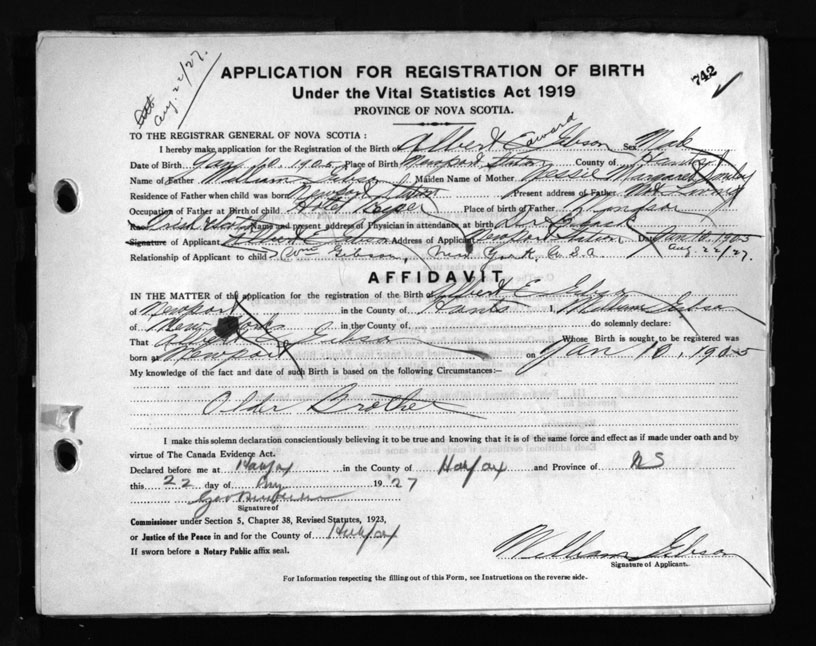 aug. 22/27.
742
APPLICATION FOR REGISTRATION OF BIRTH
Under the Vital Statistics Act 1919
PROVINCE OF NOVA SCOTIA.
TO THE REGISTRAR GENERAL OF NOVA SCOTIA :
I hereby make application for the Registration of the Birth of Albert Edward Gibson Sex Male
Date of Birth Jan 10, 1905 Place of Birth Newport Station County of Hants
Name of Father William Gibson Maiden Name of Mother Jessie Margaret
Residence of Father when child was born Newport Station Present address of Father Not Living
Occupation of Father at Birth of child Hotel Keeper Place of birth of Father Windsor
Name and present address of Physician in attendance at birth
Signature of Applicant Albert E Gibson Address of Applicant Newport Station Date Jan 10, 1905
Relationship of Applicant to child Wm Gibson, New York, U.S.A aug 22/27.
AFFIDAVIT
IN THE MATTER of the application for the registration of the Birth of Albert E. Gibson
of Newport in the County of Hants I, William Gibson
of New York in the County of do solemnly declare:
That Albert E Gibson Whose Birth is sought to be registered was
born at Newport on Jan 10, 1905
My knowledge of the fact and date of such Birth is based on the following Circumstances:—
Older Brother
I make this solemn declaration conscientiously believing it to be true and knowing that it is of the same force and effect as if made under oath and by
virtue of The Canada Evidence Act.
Declared before me at Halifax in the County of Halifax and Province of NS
this 22 day of Aug 1927
Signature of
Commissioner under Section 5, Chapter 38, Revised Statutes, 1923,
or Justice of the Peace in and for the County of Halifax
If sworn before a Notary Public affix seal.
William Gibson
Signature of Applicant.
For Information respecting the filling out of this Form, see Instructions on the reverse side.